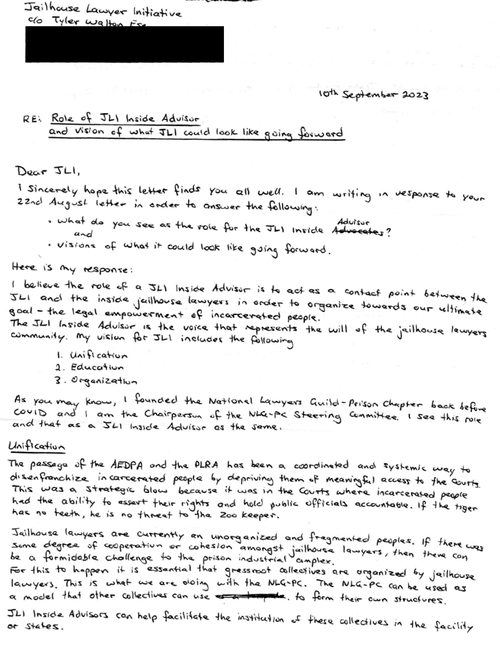 Jailhouse Lawyer Initiative
c/o Tyler Walton Esq
10th September 2023
RE: Role of JLI Inside Advisor
and vision of what JLI could look like going forward
Dear JLI,
I sincerely hope this letter finds you all well. I am writing in response to your
22nd August letter in order to answer the following:
• What do you see as the role for the JLI Inside Advisor Advocates?
and
• visions of what it could look like going forward.
Here is my response:
I believe the role of a JLI Inside Advisor is to act as a contact point between the
JLI and the inside jailhouse lawyers in order to organize towards our ultimate
goal – the legal empowerment of incarcerated people.
The JLI Inside Advisor is the voice that represents the will of the jailhouse lawyers
community. My vision for JLI includes the following
1. Unification
2. Education
3. Organization
As you may know, I founded the National Lawyers Guild-Prison Chapter back before
COVID and I am the Chairperson of the NLG-PC Steering Committee. I see this role
and that as a JLI Inside Advisor as the same.
Unification
The passage of the AEDPA and the PLRA has been a coordinated and systemic way to
disenfranchize incarcerated people by depriving them of meaningful access to the Courts.
This was a strategic blow because it was in the Courts where incarcerated people
had the ability to assert their rights and hold public officials accountable. If the tiger
has no teeth, he is no threat to the Zoo keeper.
Jailhouse lawyers are currently an unorganized and fragmented peoples. If there was
some degree of cooperation or cohesion amongst jailhouse lawyers, then there can
be a formidable challenge to the prison industrial complex.
For this to happen it is essential that grassroot collectives are organized by jailhouse
lawyers. This is what we are doing with the NLG-PC. The NLG-PC can be used as
a model that other collectives can use to form their own structures.
JLI Inside Advisors can help facilitate the institution of these collectives in the facility
or states.